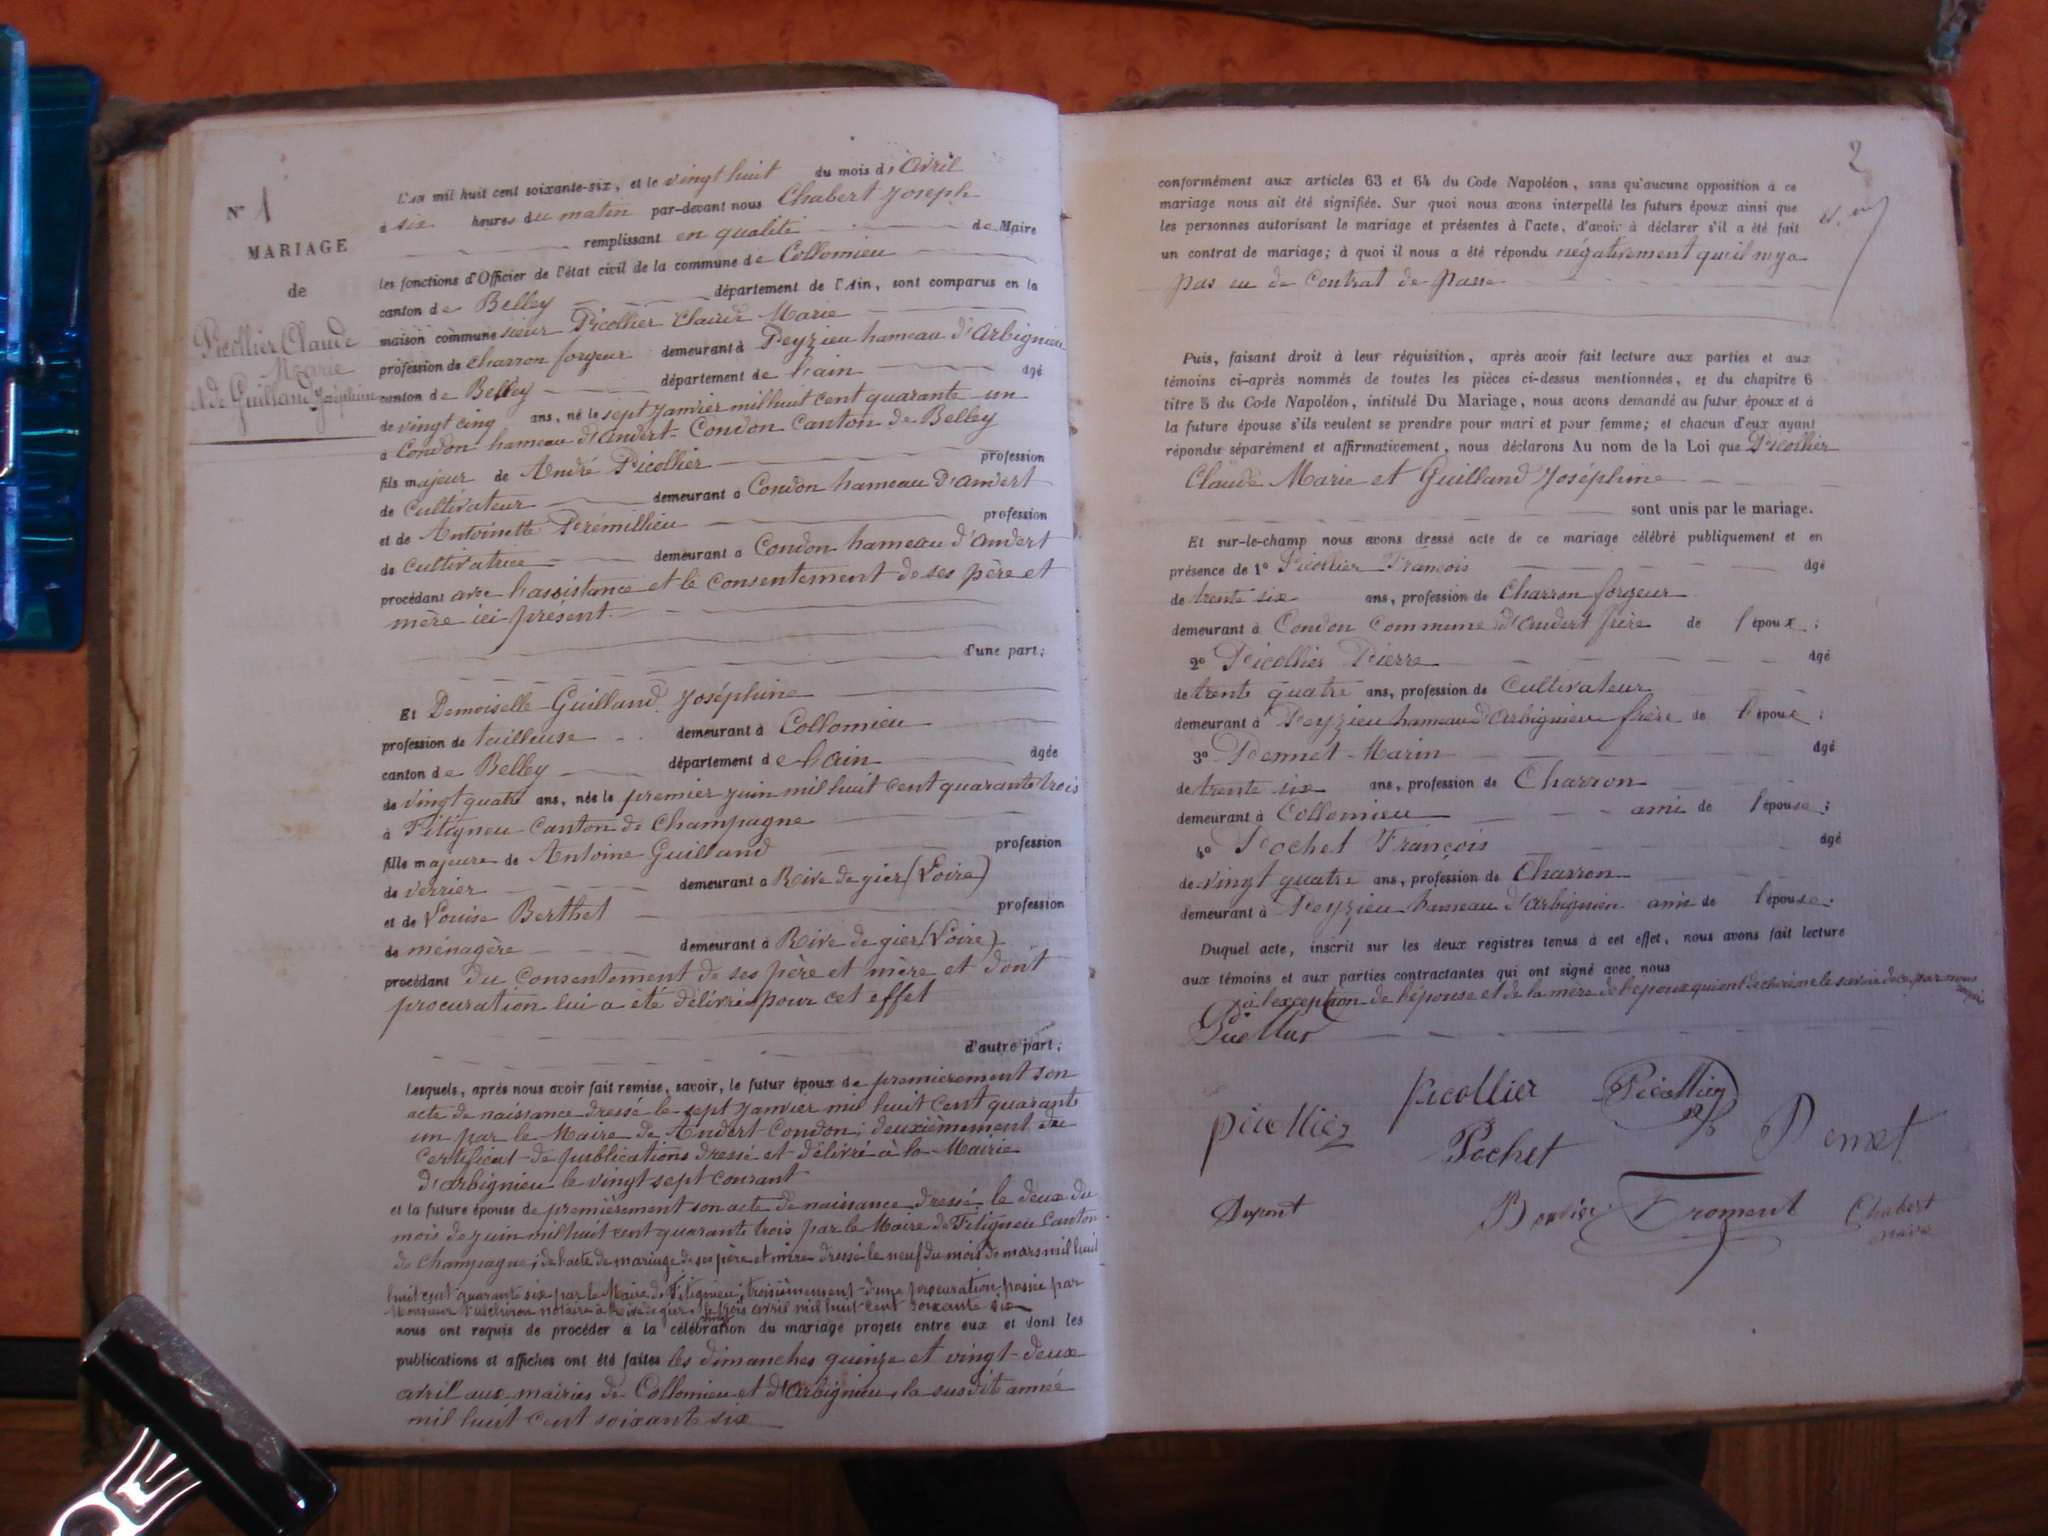 N° 1
MARIAGE
de
Picollier Claude
Marie
et de Guilland Joséphine
L'an mil huit cent soixante-six, et le vingt huit du mois d'Avril
à six heures du matin par-devant nous Chabert Joseph
remplissant en qualité de Maire
les fonctions d'Officier de l'état civil de la commune de Collomieu
canton de Belley département de l'Ain, sont comparus en la
maison commune sieur Picollier Claude Marie
profession de charron forgeur demeurant à Peyzieu hameau d'Arbignieu
canton de Belley département de l'ain âgé
de vingt cinq ans, né le sept janvier mil huit cent quarante un
à Condon hameau d'andert-Condon Canton de Belley
fils majeur de André Picollier profession
de Cultivateur demeurant à Condon hameau d'Andert
et de Antoinette Prémillieu profession
de Cultivatrice demeurant à Condon hameau d'andert
procédant avec l'assistance et le consentement de ses père et
mère ici présent.
d'une part;
Et Demoiselle Guilland Joséphine
profession de tailleuse demeurant à Collomieu
canton de Belley département de l'Ain âgée
de vingt quatre ans, née le premier juin mil huit cent quarante trois
à Fitigneu Canton de Champagne
fille majeure de Antoine Guilland profession
de verrier demeurant à Rive de gier (Loire)
et de Louise Berthet profession
de ménagère demeurant à Rive de gier (Loire)
procédant du consentement de ses père et mère et dont
procuration lui a été délivrée pour cet effet
d'autre part;
Lesquels, après nous avoir fait remise, savoir, le futur époux de premierement son
acte de naissance dressé le sept janvier mil huit cent quarante
un par le Maire de Andert-Condon; deuxièmement du
certificat de publications dressé et délivré à la Mairie
d'arbignieu le vingt sept courant
et la future épouse de premièrement son acte de naissance dressé le deux du
mois de juin mil huit cent quarante trois par le Maire de Fitigneu Canton
de Champagne; de l'acte de mariage de ses père et mère dressé le neuf du mois de mars mil huit
huit cent quarante six par le Maire de Fitignieu; troisièmement d'une procuration passée par
Monsieur notaire à Rive de gier, le trois avril mil huit cent soixante six
nous ont requis de procéder à la célébration du mariage projeté entre eux et dont les
publications et affiches ont été faites les dimanches quinze et vingt-deux
avril aux mairies de Collomieu et d'Arbignieu, la susdite année
mil huit cent soixante six
2
conformément aux articles 63 et 64 du Code Napoléon, sans qu'aucune opposition à ce
mariage nous ait été signifiée. Sur quoi nous avons interpellé les futurs époux ainsi que
les personnes autorisant le mariage et présentes à l'acte, d'avoir à déclarer s'il a été fait
un contrat de mariage; à quoi il nous a été répondu négativement qu'il n'y a
pas eu de Contrat de passé
Puis, faisant droit à leur réquisition, après avoir fait lecture aux parties et aux
témoins ci-après nommés de toutes les pièces ci-dessus mentionnées, et du chapitre 6
titre 5 du Code Napoléon, intitulé Du Mariage, nous avons demandé au futur époux et à
la future épouse s'ils veulent se prendre pour mari et pour femme; et chacun d'eux ayant
répondu séparément et affirmativement, nous déclarons Au nom de la Loi que Picollier
Claude Marie et Guilland Joséphine
sont unis par le mariage.
Et sur-le-champ nous avons dressé acte de ce mariage célébré publiquement et en
présence de 1° Picollier François âgé
de trente six ans, profession de Charron forgeur
demeurant à Condon Commune d'Andert frère de l'époux;
2° Picollier Pierre âgé
de trente quatre ans, profession de Cultivateur
demeurant à Peyzieu hameau d'Arbignieu frère de l'époux;
3° Pennet Marin âgé
de trente six ans, profession de Charron
demeurant à Collomieu ami de l'épouse;
4° Pochet François âgé
de vingt quatre ans, profession de Charron
demeurant à Peyzieu hameau d'Arbignieu ami de l'épouse.
Duquel acte, inscrit sur les deux registres tenus à cet effet, nous avons fait lecture
aux témoins et aux parties contractantes qui ont signé avec nous
à l'exception de l'épouse et de la mère de l'époux qui ont déclaré ne le savoir de ce par nous
requis
picollier picollier Picollier
Pochet Pennet
Dupont Bouvier Froment Chabert
maire